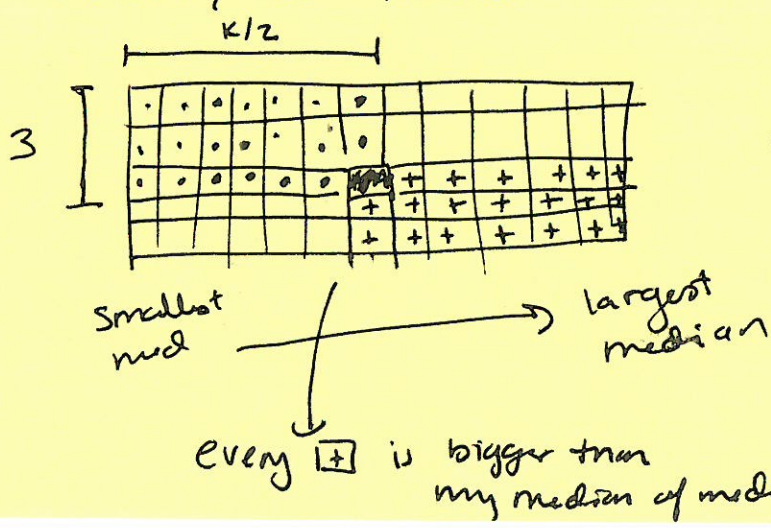 K/2
3
smallest
med
largest
median
every + is bigger than
my median of med